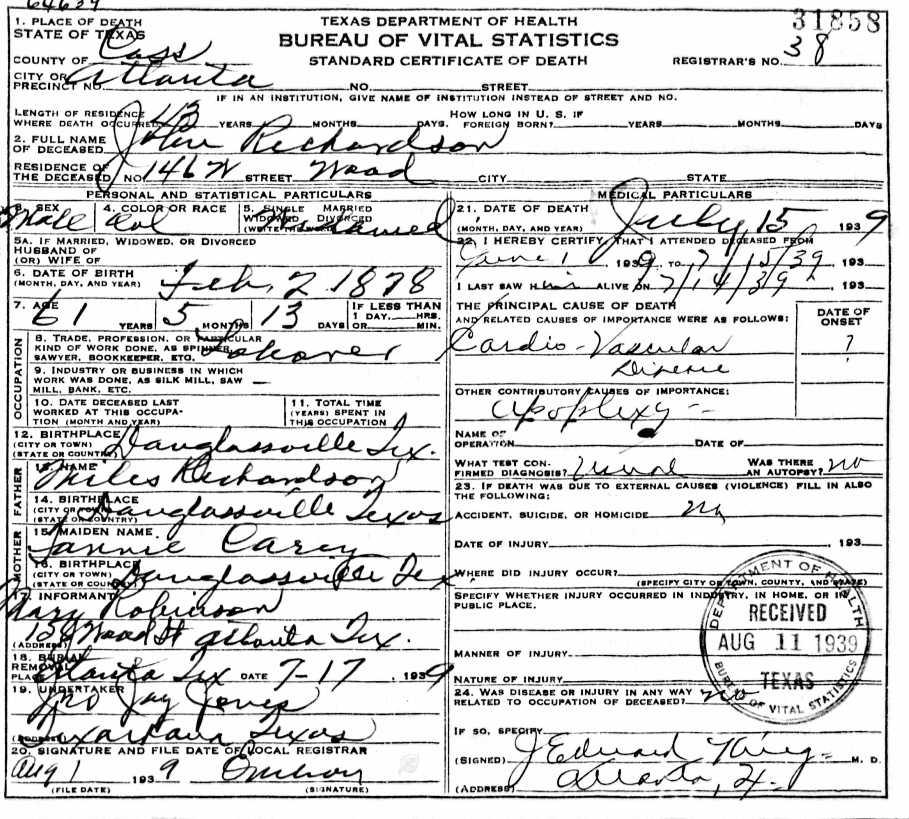 TEXAS DEPARTMENT OF HEALTH
BUREAU OF VITAL STATISTICS
STANDARD CERTIFICATE OF DEATH
31858
REGISTRAR'S NO. 38
1. PLACE OF DEATH
STATE OF TEXAS
COUNTY OF Cass
CITY OR PRECINCT NO. Atlanta NO. STREET
IF IN AN INSTITUTION, GIVE NAME OF INSTITUTION INSTEAD OF STREET AND NO.
LENGTH OF RESIDENCE WHERE DEATH OCCURRED 43 YEARS MONTHS DAYS. HOW LONG IN U. S. IF FOREIGN BORN? YEARS MONTHS DAYS
2. FULL NAME OF DECEASED John Richardson
RESIDENCE OF THE DECEASED NO. 146 W STREET Wood CITY STATE
PERSONAL AND STATISTICAL PARTICULARS
3. SEX Male 4. COLOR OR RACE Col 5. SINGLE MARRIED WIDOWED DIVORCED (WRITE THE WORD)
5A. IF MARRIED, WIDOWED, OR DIVORCED
HUSBAND OF
(OR) WIFE OF
6. DATE OF BIRTH (MONTH, DAY, AND YEAR) Feb, 2, 1878
7. AGE 61 YEARS 5 MONTHS 13 DAYS IF LESS THAN 1 DAY, HRS. OR MIN.
OCCUPATION
8. TRADE, PROFESSION, OR PARTICULAR KIND OF WORK DONE, AS SPINNER, SAWYER, BOOKKEEPER, ETC.
9. INDUSTRY OR BUSINESS IN WHICH WORK WAS DONE, AS SILK MILL, SAW MILL, BANK, ETC. —
10. DATE DECEASED LAST WORKED AT THIS OCCUPATION (MONTH AND YEAR)
11. TOTAL TIME (YEARS) SPENT IN THIS OCCUPATION
12. BIRTHPLACE (CITY OR TOWN) (STATE OR COUNTRY) Douglassville Tex.
FATHER
13. NAME Miles Richardson
14. BIRTHPLACE (CITY OR TOWN) (STATE OR COUNTRY) Douglassville Texas
MOTHER
15. MAIDEN NAME Carey
16. BIRTHPLACE (CITY OR TOWN) (STATE OR COUNTRY) Douglassville Tex
17. INFORMANT Mary Robinson
(ADDRESS) Wood St Atlanta Tex.
18. BURIAL REMOVAL PLACE Atlanta Tex DATE 7-17, 1939
19. UNDERTAKER Jay Jones
(ADDRESS) Texarkana Texas
20. SIGNATURE AND FILE DATE OF LOCAL REGISTRAR
Aug 1 1939
(FILE DATE) (SIGNATURE)
MEDICAL PARTICULARS
21. DATE OF DEATH (MONTH, DAY, AND YEAR) July, 15 1939
22. I HEREBY CERTIFY THAT I ATTENDED DECEASED FROM
June 1 1939 TO 7/15/39, 193
I LAST SAW him ALIVE ON 7/14/39, 193
THE PRINCIPAL CAUSE OF DEATH
AND RELATED CAUSES OF IMPORTANCE WERE AS FOLLOWS:
DATE OF ONSET
Cardio-Vascular ?
Disease
OTHER CONTRIBUTORY CAUSES OF IMPORTANCE:
Apoplexy
NAME OF OPERATION DATE OF
WHAT TEST CONFIRMED DIAGNOSIS? Usual WAS THERE AN AUTOPSY? no
23. IF DEATH WAS DUE TO EXTERNAL CAUSES (VIOLENCE) FILL IN ALSO THE FOLLOWING:
ACCIDENT, SUICIDE, OR HOMICIDE no
DATE OF INJURY , 193
WHERE DID INJURY OCCUR?
(SPECIFY CITY OR TOWN, COUNTY, AND STATE)
SPECIFY WHETHER INJURY OCCURRED IN INDUSTRY, IN HOME, OR IN PUBLIC PLACE.
MANNER OF INJURY
NATURE OF INJURY
24. WAS DISEASE OR INJURY IN ANY WAY RELATED TO OCCUPATION OF DECEASED? no
IF SO, SPECIFY
(SIGNED) J Edward M. D.
(ADDRESS) Atlanta,
DEPARTMENT OF HEALTH
RECEIVED
AUG 11 1939
TEXAS
BUREAU OF VITAL STATISTICS